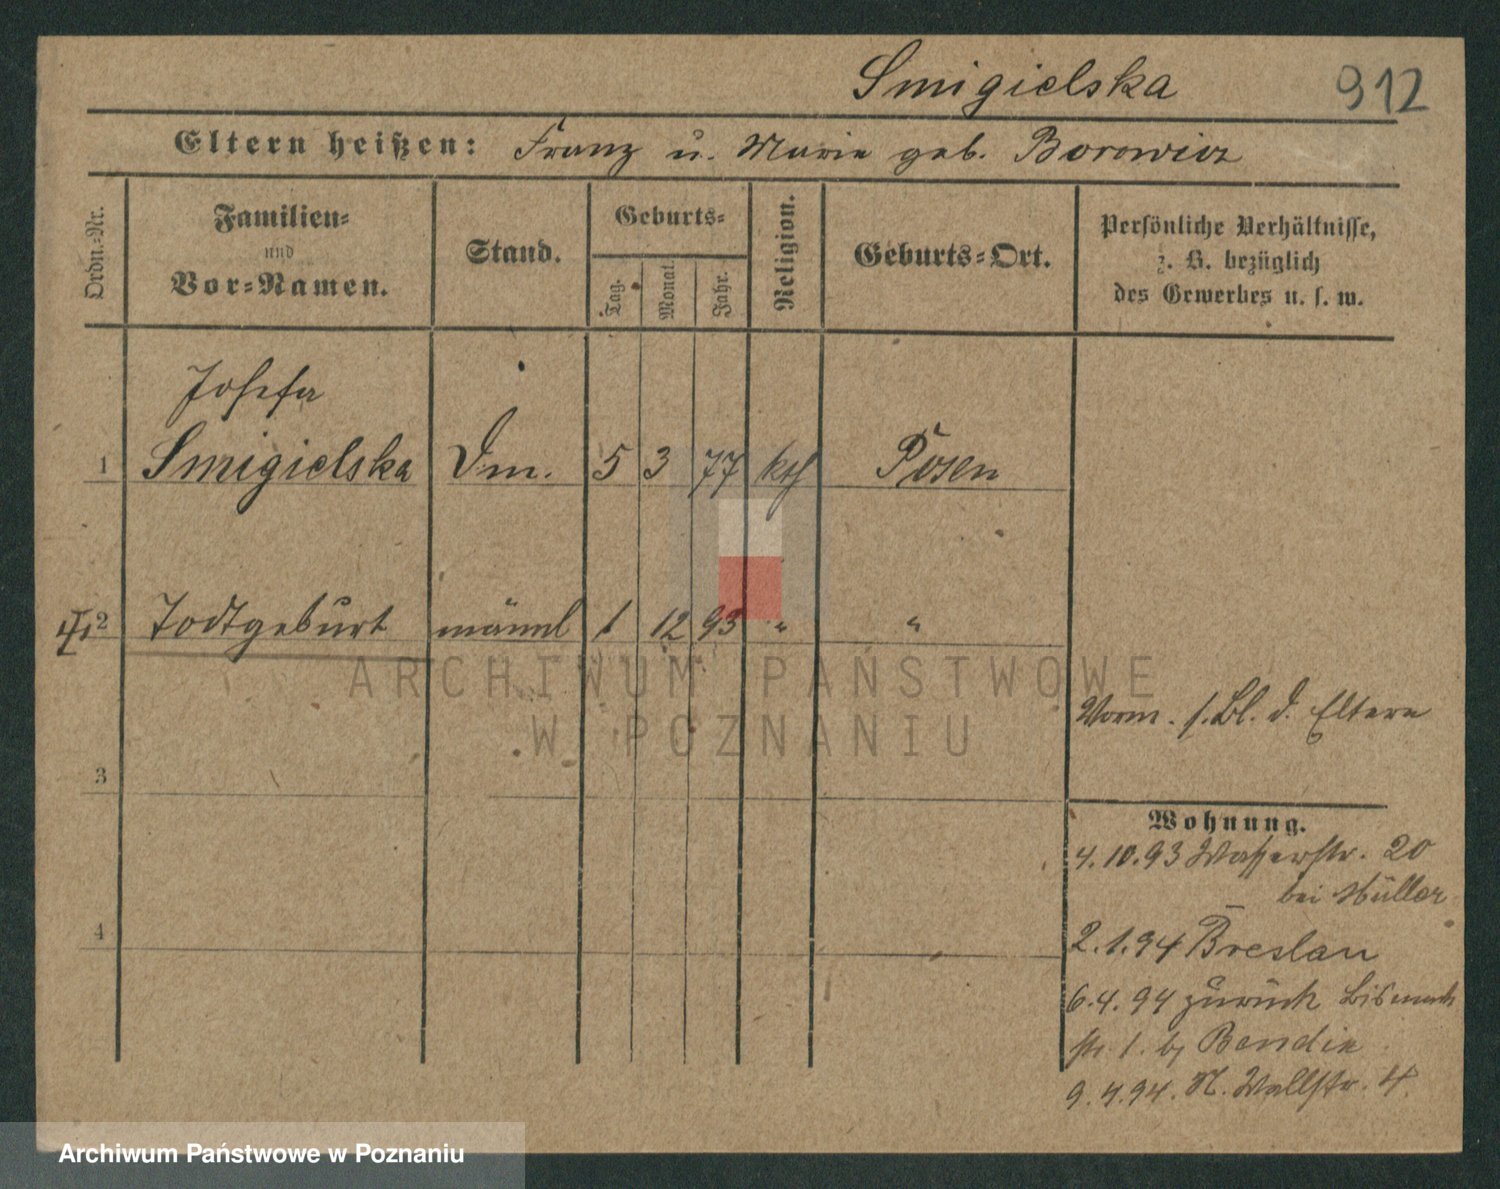 Smigielska 912
Eltern heißen: Franz u. Marie geb. Borowicz
Ordn.=Nr.
Familien=
und
Vor=Namen.
Stand.
Geburts=
Tag.
Monat.
Jahr.
Religion.
Geburts=Ort.
Persönliche Verhältnisse,
z. B. bezüglich
des Gewerbes u. s. w.
Josefa
1 Smigielska Dm. 5 3 77 kth Posen
2 Todtgeburt männl 1 12 93 " "
ARCHIWUM PAŃSTWOWE
W POZNANIU
Vorm. s. Bl. d. Eltern
3
Wohnung.
4.10.93 Wasserstr. 20
bei Müller
4
2.1.94 Breslau
6.4.94 zurück Bismarck
str. 1. b,
9.4.94. N. Wallstr. 4.
Archiwum Państwowe w Poznaniu